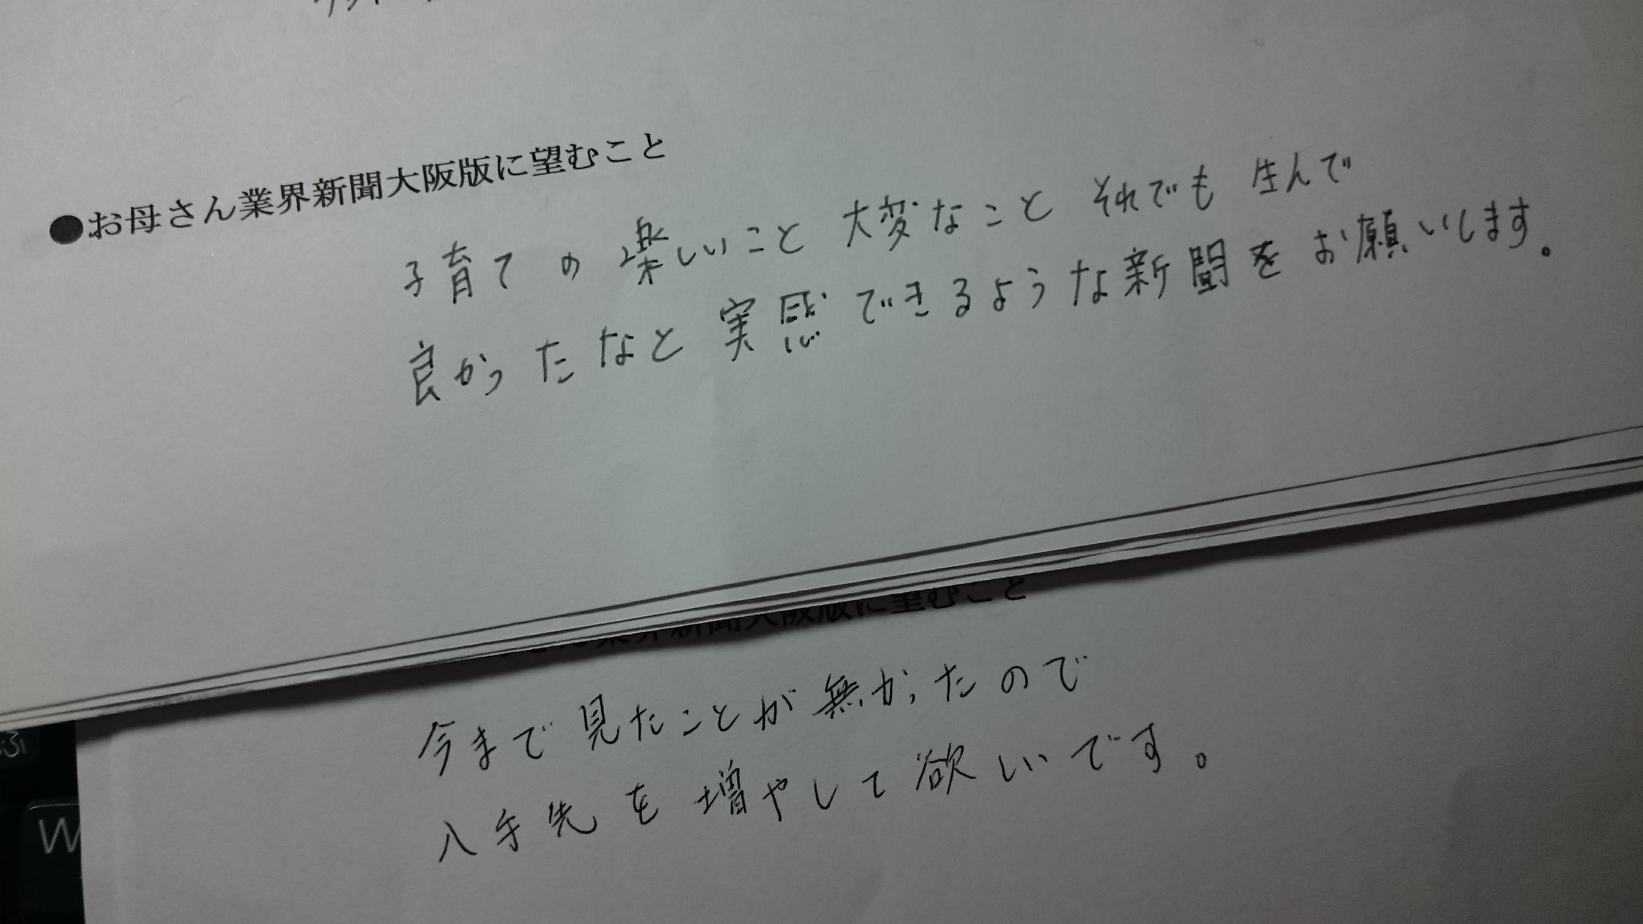 ●お母さん業界新聞大阪版に望むこと
子育ての楽しいこと 大変なこと それでも 生んで
良かったなと実感できるような新聞をお願いします。
業界新聞大阪版に望むこと
今まで見たことが無かったので
入手先を増やして欲しいです。
ふ
W